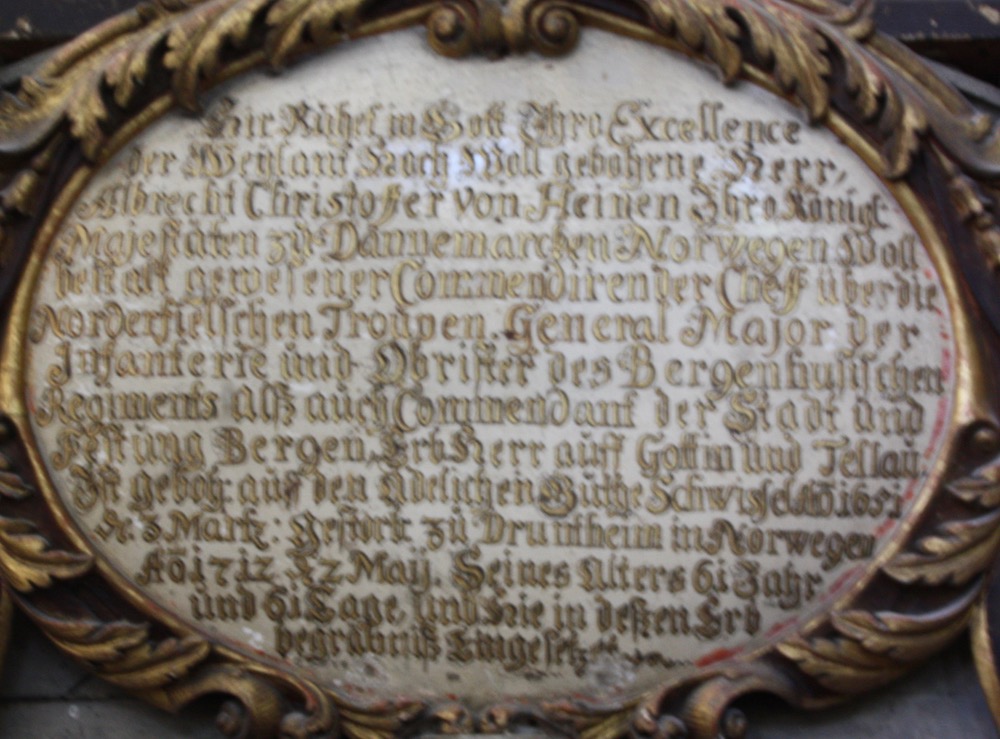 Hir Ruhet in Gott Ihro Excellence
der Weylant Hoch Woll gebohrne Herr,
Albrecht Christoffer von Heinen Ihro Königl:
Majestäten zü Dännemarcken Norwegen Woll
bestalt gewesener Commendirender Cheff über die
Norderfielschen Troupen. General Major der
Infanterie und Obrister des Bergenhusischen
Regiments alß auch Commendant der Stadt und
Festung Bergen. Erb Herr auff Gottin und Tellau.
Ist geboh: auf den Adelichen Gutthe Schwissel Aō 1651
d. 3 Martz: gestorb zü Druntheim in Norwegen
Aō 1712 Maij. Seines Alters 61 Jahr
und 61 Tage, Und Hie in deßen Erb
begräbniß Eingesetz